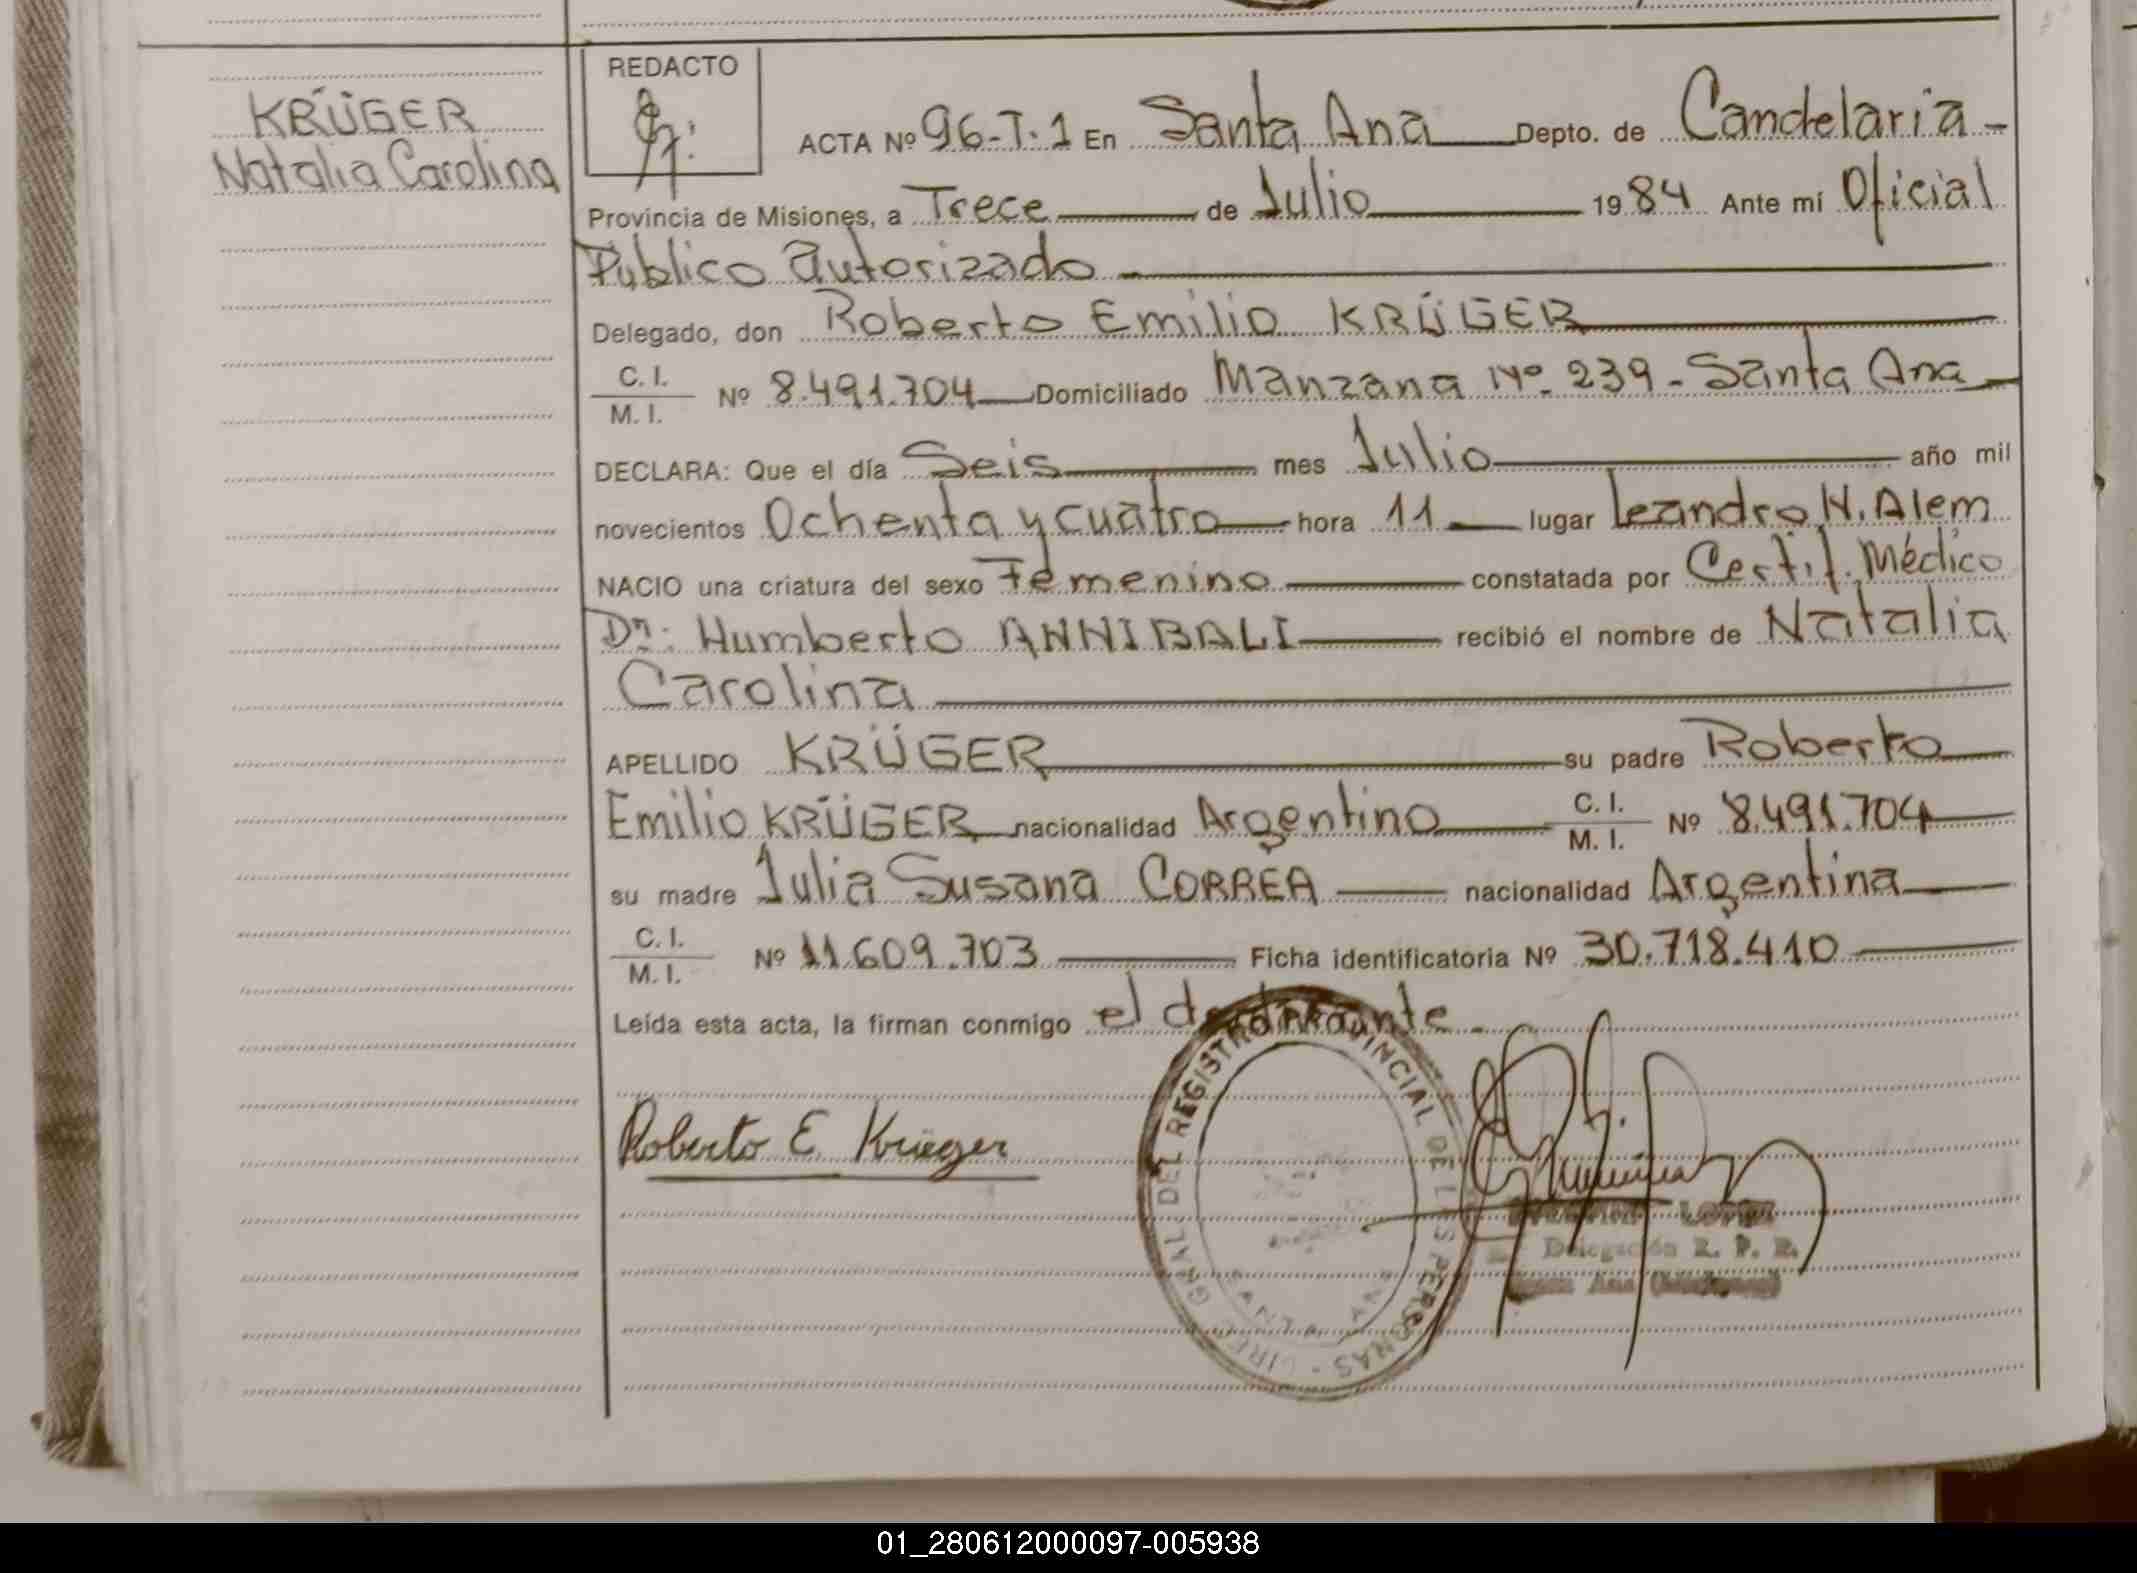 KRÜGER
Natalia Carolina
REDACTO
ACTA Nº 96-T.1 En Santa Ana Depto. de Candelaria -
Provincia de Misiones, a Trece de Julio 1984 Ante mí Oficial
Público autorizado
Delegado, don Roberto Emilio KRÜGER
C. I.
M. I.
Nº 8.491.704 Domiciliado Manzana Nº 239 - Santa Ana
DECLARA: Que el día Seis mes Julio año mil
novecientos Ochenta y cuatro hora 11 lugar Leandro N. Alem
NACIO una criatura del sexo Femenino constatada por Certif. Médico
Dr: Humberto ANNIBALI recibió el nombre de Natalia
Carolina
APELLIDO KRÜGER su padre Roberto
Emilio KRÜGER nacionalidad Argentino C. I. M. I. Nº 8.491.704
su madre Julia Susana CORREA nacionalidad Argentina
C. I.
M. I.
Nº 11.609.703 Ficha identificatoria Nº 30.718.410
Leída esta acta, la firman conmigo el declarante.
Roberto E Krüeger
DIREC. GRAL. DEL REGISTRO PROVINCIAL DE LAS PERSONAS
SANTA ANA
Delegación R. P. P.
01_280612000097-005938